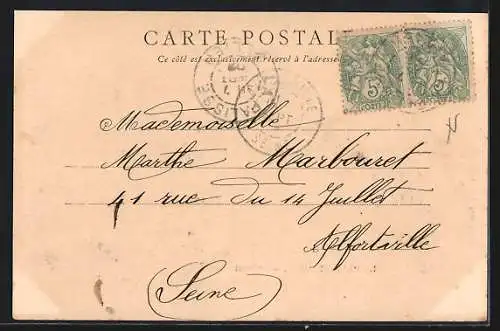 CARTE POSTALE
Ce côté est exclusivement réservé à l'adresse
5 5
Mademoiselle
Marthe Marbouret
41 rue du 14 Juillet
Alfortville
(Seine)